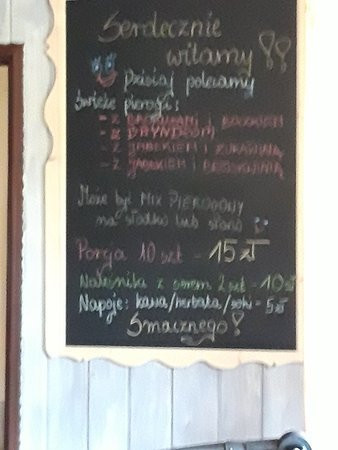 Serdecznie
witamy!!
Dzisiaj polecamy
świeże pierogi:
- z i BOCZKIEM
- z BRYNDZĄ
- z JABŁKIEM i ŻURAWINĄ
- z JABŁKIEM i
Może być MIX PIEROGOWY
na słodko lub słono
Porcja 10 szt - 15 zł
Naleśniki z serem 2 szt - 10 zł
Napoje: kawa/herbata/soki = 5 zł
Smacznego!